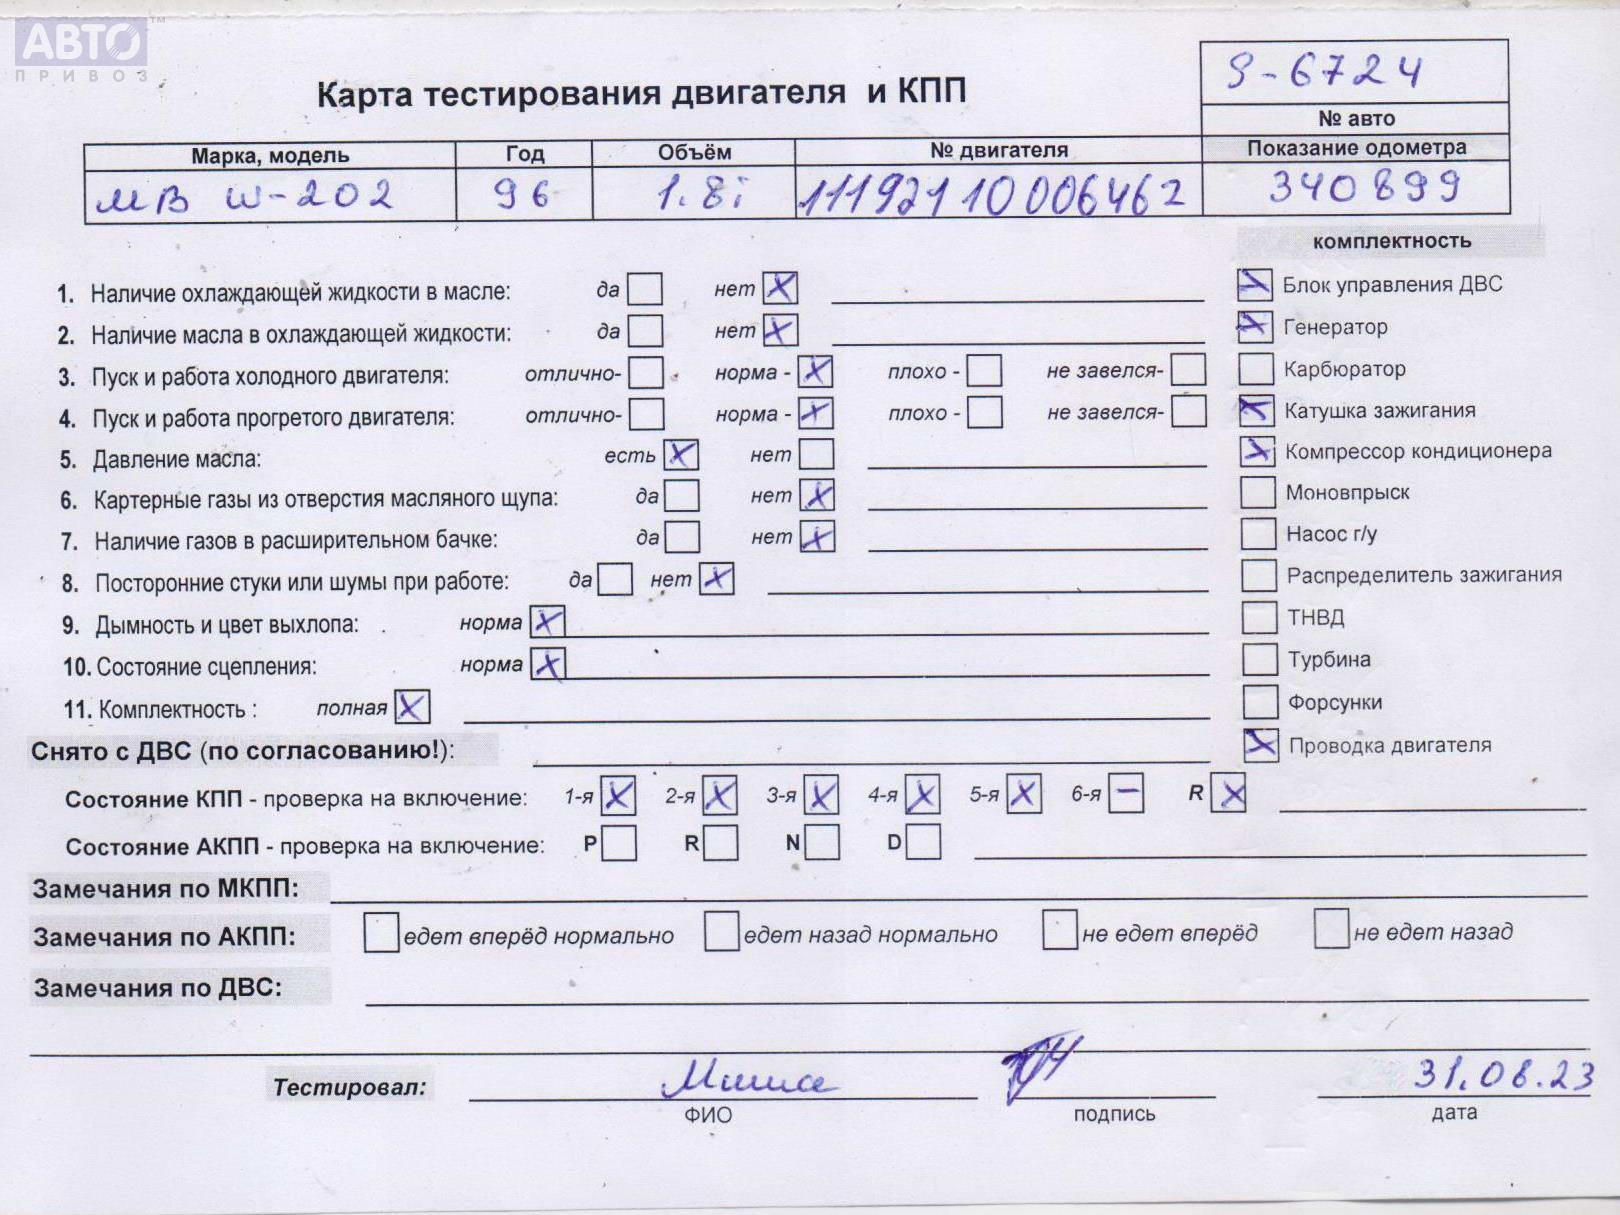 АВТО™
ПРИВОЗ
Карта тестирования двигателя и КПП
S-6724
№ авто
Марка, модель Год Объём № двигателя Показание одометра
МВ W-202 96 1.8i 11192110006462 340899
комплектность
1. Наличие охлаждающей жидкости в масле: да нет X Блок управления ДВС
2. Наличие масла в охлаждающей жидкости: да нет X Генератор
3. Пуск и работа холодного двигателя: отлично- норма - X плохо - не завелся- Карбюратор
4. Пуск и работа прогретого двигателя: отлично- норма - X плохо - не завелся- X Катушка зажигания
5. Давление масла: есть X нет X Компрессор кондиционера
6. Картерные газы из отверстия масляного щупа: да нет X Моновпрыск
7. Наличие газов в расширительном бачке: да нет X Насос г/у
8. Посторонние стуки или шумы при работе: да нет X Распределитель зажигания
9. Дымность и цвет выхлопа: норма X ТНВД
10. Состояние сцепления: норма X Турбина
11. Комплектность : полная X Форсунки
Снято с ДВС (по согласованию!): X Проводка двигателя
Состояние КПП - проверка на включение: 1-я X 2-я X 3-я X 4-я X 5-я X 6-я – R X
Состояние АКПП - проверка на включение: P R N D
Замечания по МКПП:
Замечания по АКПП: едет вперёд нормально едет назад нормально не едет вперёд не едет назад
Замечания по ДВС:
Тестировал: Миша 31.08.23
ФИО подпись дата